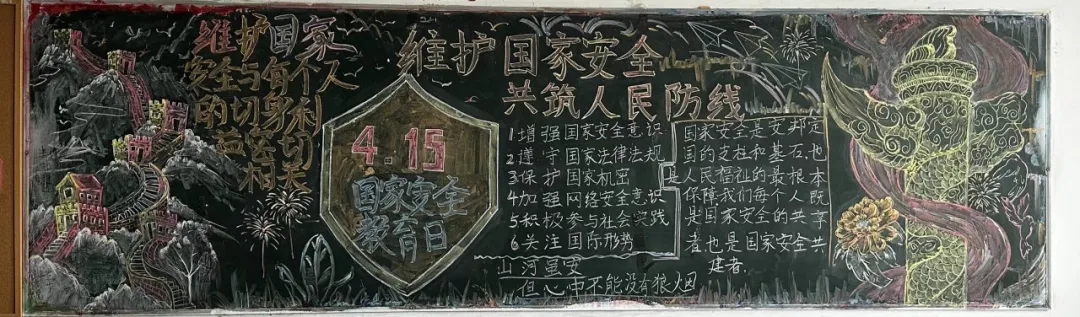 维护国家
安全与每个人
的切身利
益密切
相关
维护国家安全
共筑人民防线
4.15
国家安全
教育日
1增强国家安全意识
2遵守国家法律法规
3保护国家机密
4加强网络安全意识
5积极参与社会实践
6关注国际形势
山河虽安
但心中不能没有狼烟
国家安全是安邦定
国的支柱和基石,也
是人民福祉的最根本
保障我们每个人既
是国家安全的共享
者也是国家安全共
建者.